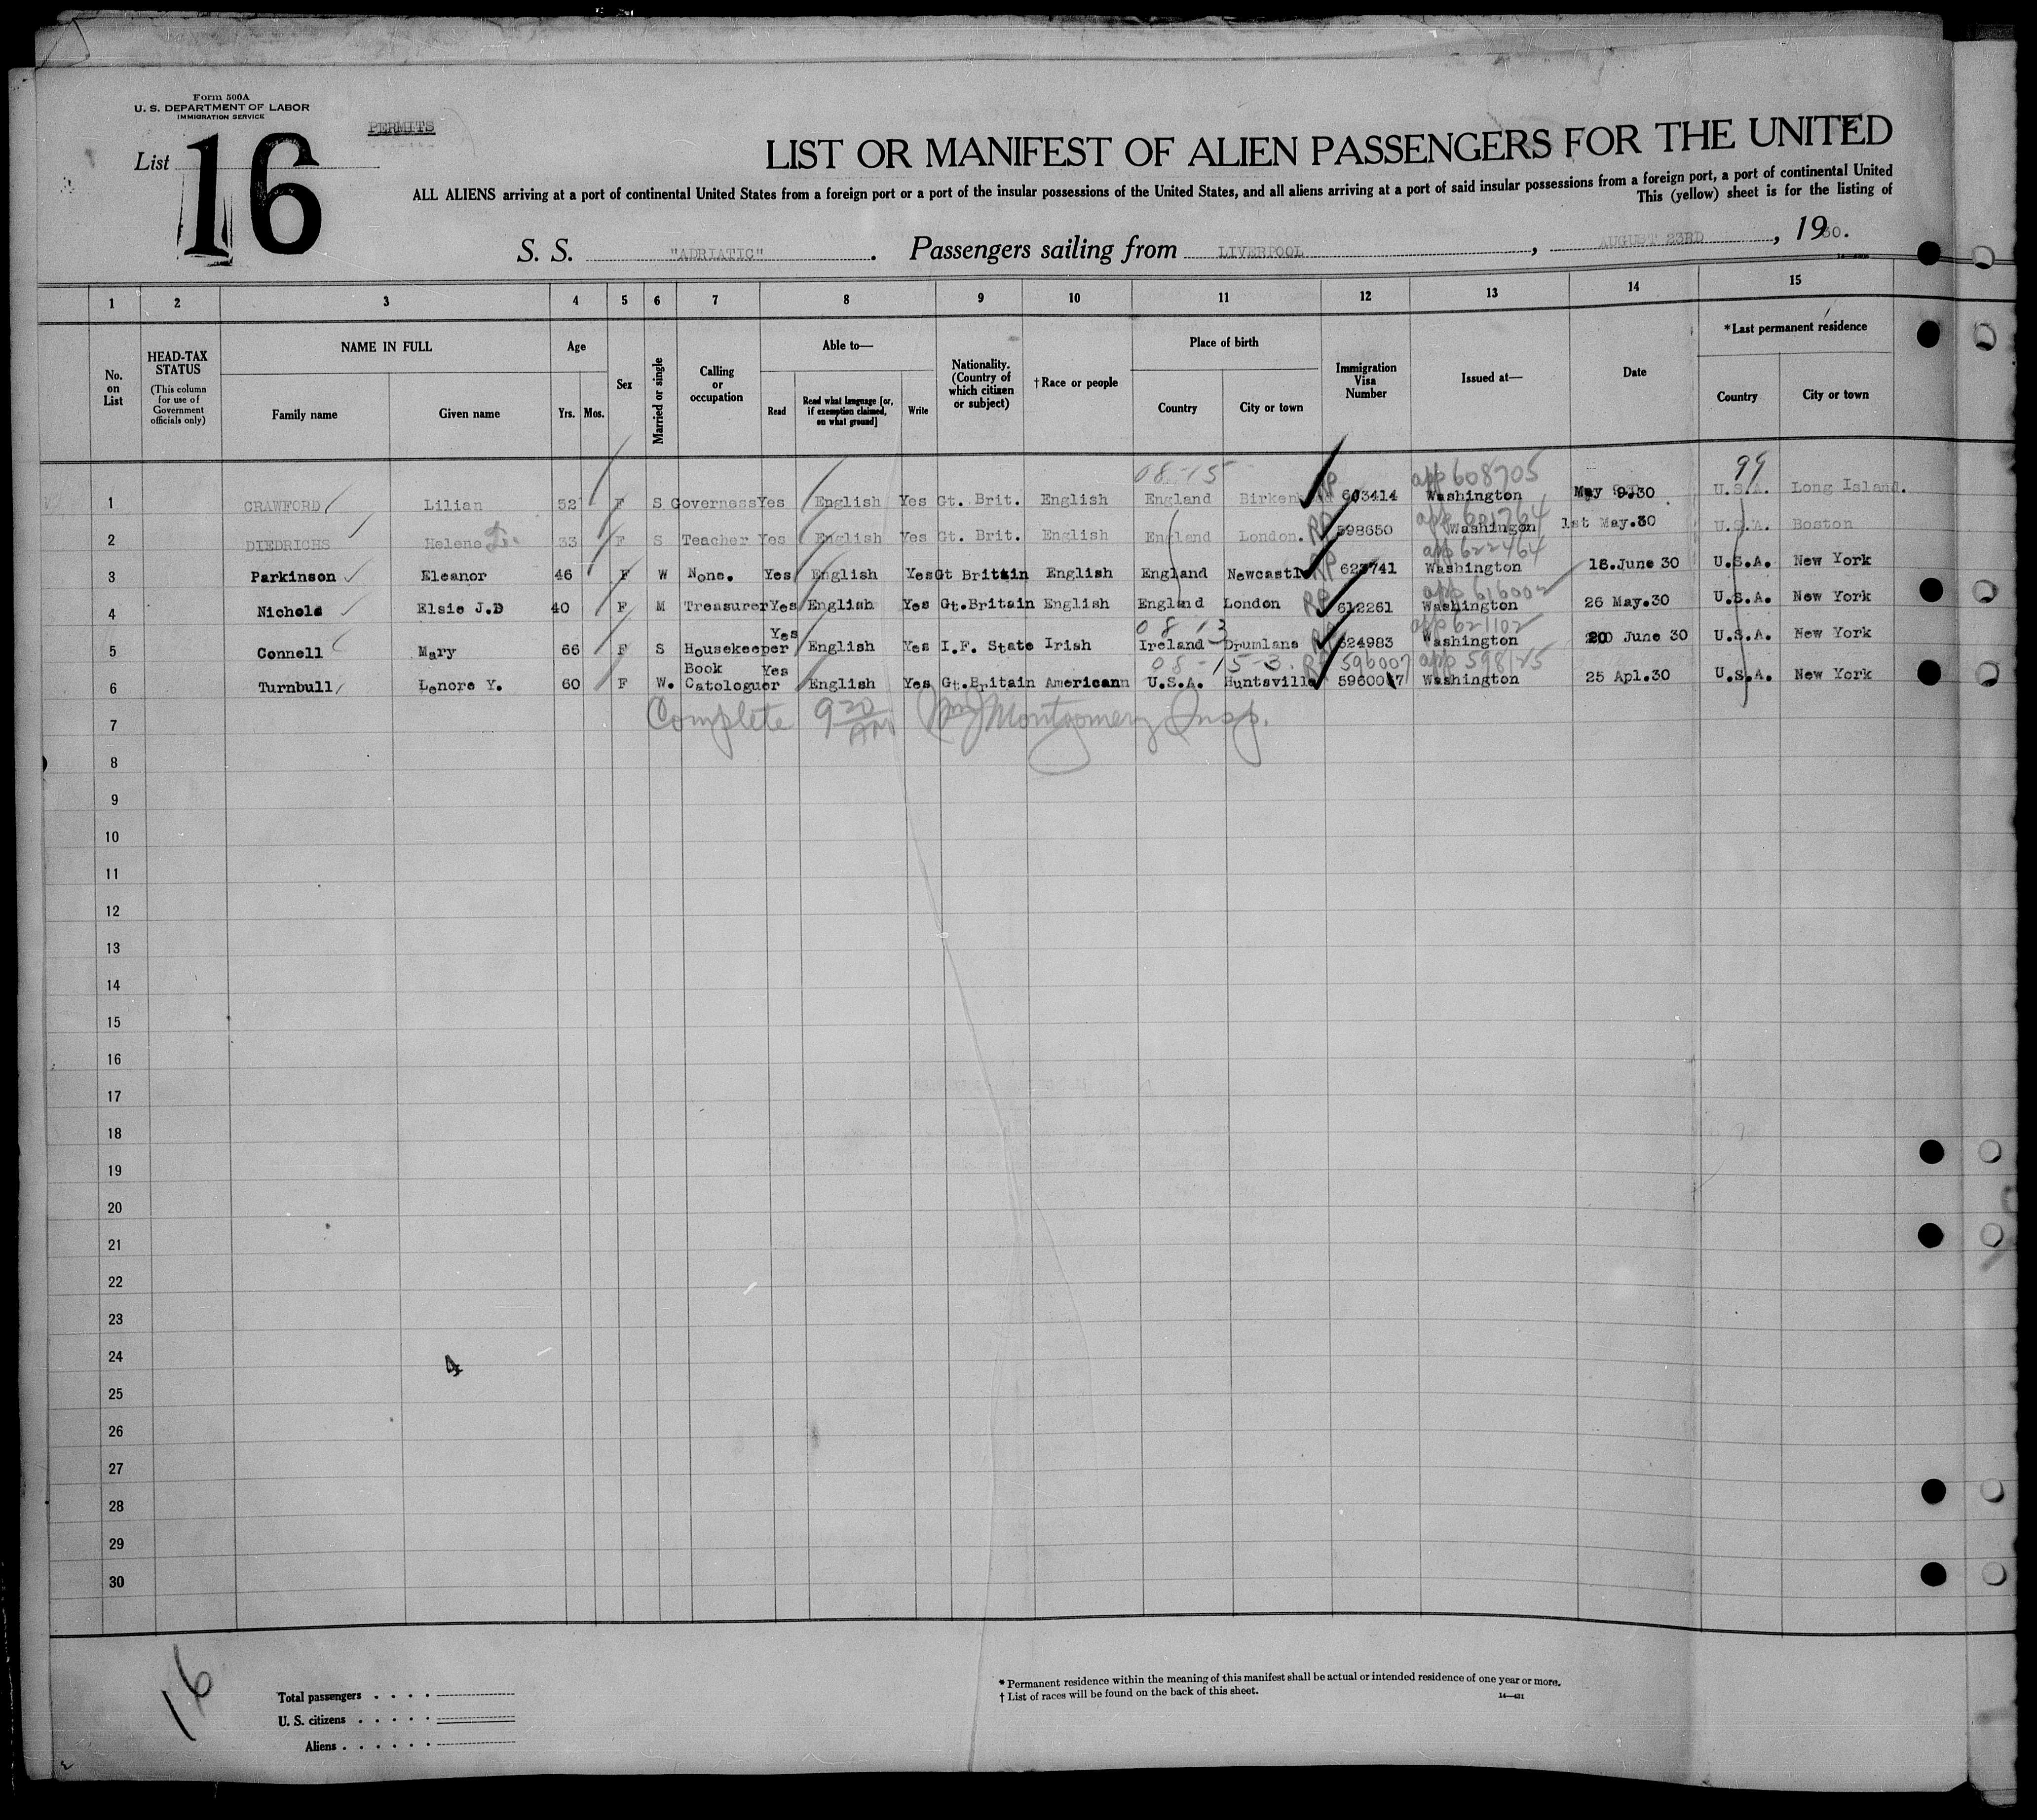 Form 500A
U. S. DEPARTMENT OF LABOR
IMMIGRATION SERVICE
PERMITS
List 16
LIST OR MANIFEST OF ALIEN PASSENGERS FOR THE UNITED
ALL ALIENS arriving at a port of continental United States from a foreign port or a port of the insular possessions of the United States, and all aliens arriving at a port of said insular possessions from a foreign port, a port of continental United
This (yellow) sheet is for the listing of
S. S. "ADRIATIC". Passengers sailing from LIVERPOOL, AUGUST 23RD, 1930.
1 2 3 4 5 6 7 8 9 10 11 12 13 14 15
No. on List
HEAD-TAX STATUS (This column for use of Government officials only)
NAME IN FULL
Family name Given name
Age
Yrs. Mos.
Sex
Married or single
Calling or occupation
Able to—
Read Read what language [or, if exemption claimed, on what ground] Write
Nationality. (Country of which citizen or subject)
† Race or people
Place of birth
Country City or town
Immigration Visa Number
Issued at—
Date
*Last permanent residence
Country City or town
08-15 RP app 608705 99
1 CRAWFORD Lilian 52 F S Governess Yes English Yes Gt. Brit. English England Birken 603414 Washington May 9.30 U.S.A. Long Island.
RP app 601764
2 DIEDRICHS Helene D. 33 F S Teacher Yes English Yes Gt. Brit. English England London. 598650 Washingon 1st May.30 U.S.A. Boston
RP app 622464
3 Parkinson Eleanor 46 F W None. Yes English Yes Gt Britain English England Newcastle 623741 Washington 18.June 30 U.S.A. New York
RP app 616002
4 Nichols Elsie J.D 40 F M Treasurer Yes English Yes Gt.Britain English England London 612261 Washington 26 May.30 U.S.A. New York
08 13 RP app 621102
5 Connell Mary 66 F S Housekeeper Yes English Yes I.F. State Irish Ireland Drumlane 624983 Washington 20 June 30 U.S.A. New York
08-15-3. RP 596007 app 598125
6 Turnbull Lenore Y. 60 F W. Book Catologuer Yes English Yes Gt.Britain Americann U.S.A. Huntsville 5960017 Washington 25 Apl.30 U.S.A. New York
Complete 9 20 AM Montgomery Insp.
7
8
9
10
11
12
13
14
15
16
17
18
19
20
21
22
23
24
4
25
26
27
28
29
30
16
Total passengers
U. S. citizens
Aliens
* Permanent residence within the meaning of this manifest shall be actual or intended residence of one year or more.
† List of races will be found on the back of this sheet.
14—431